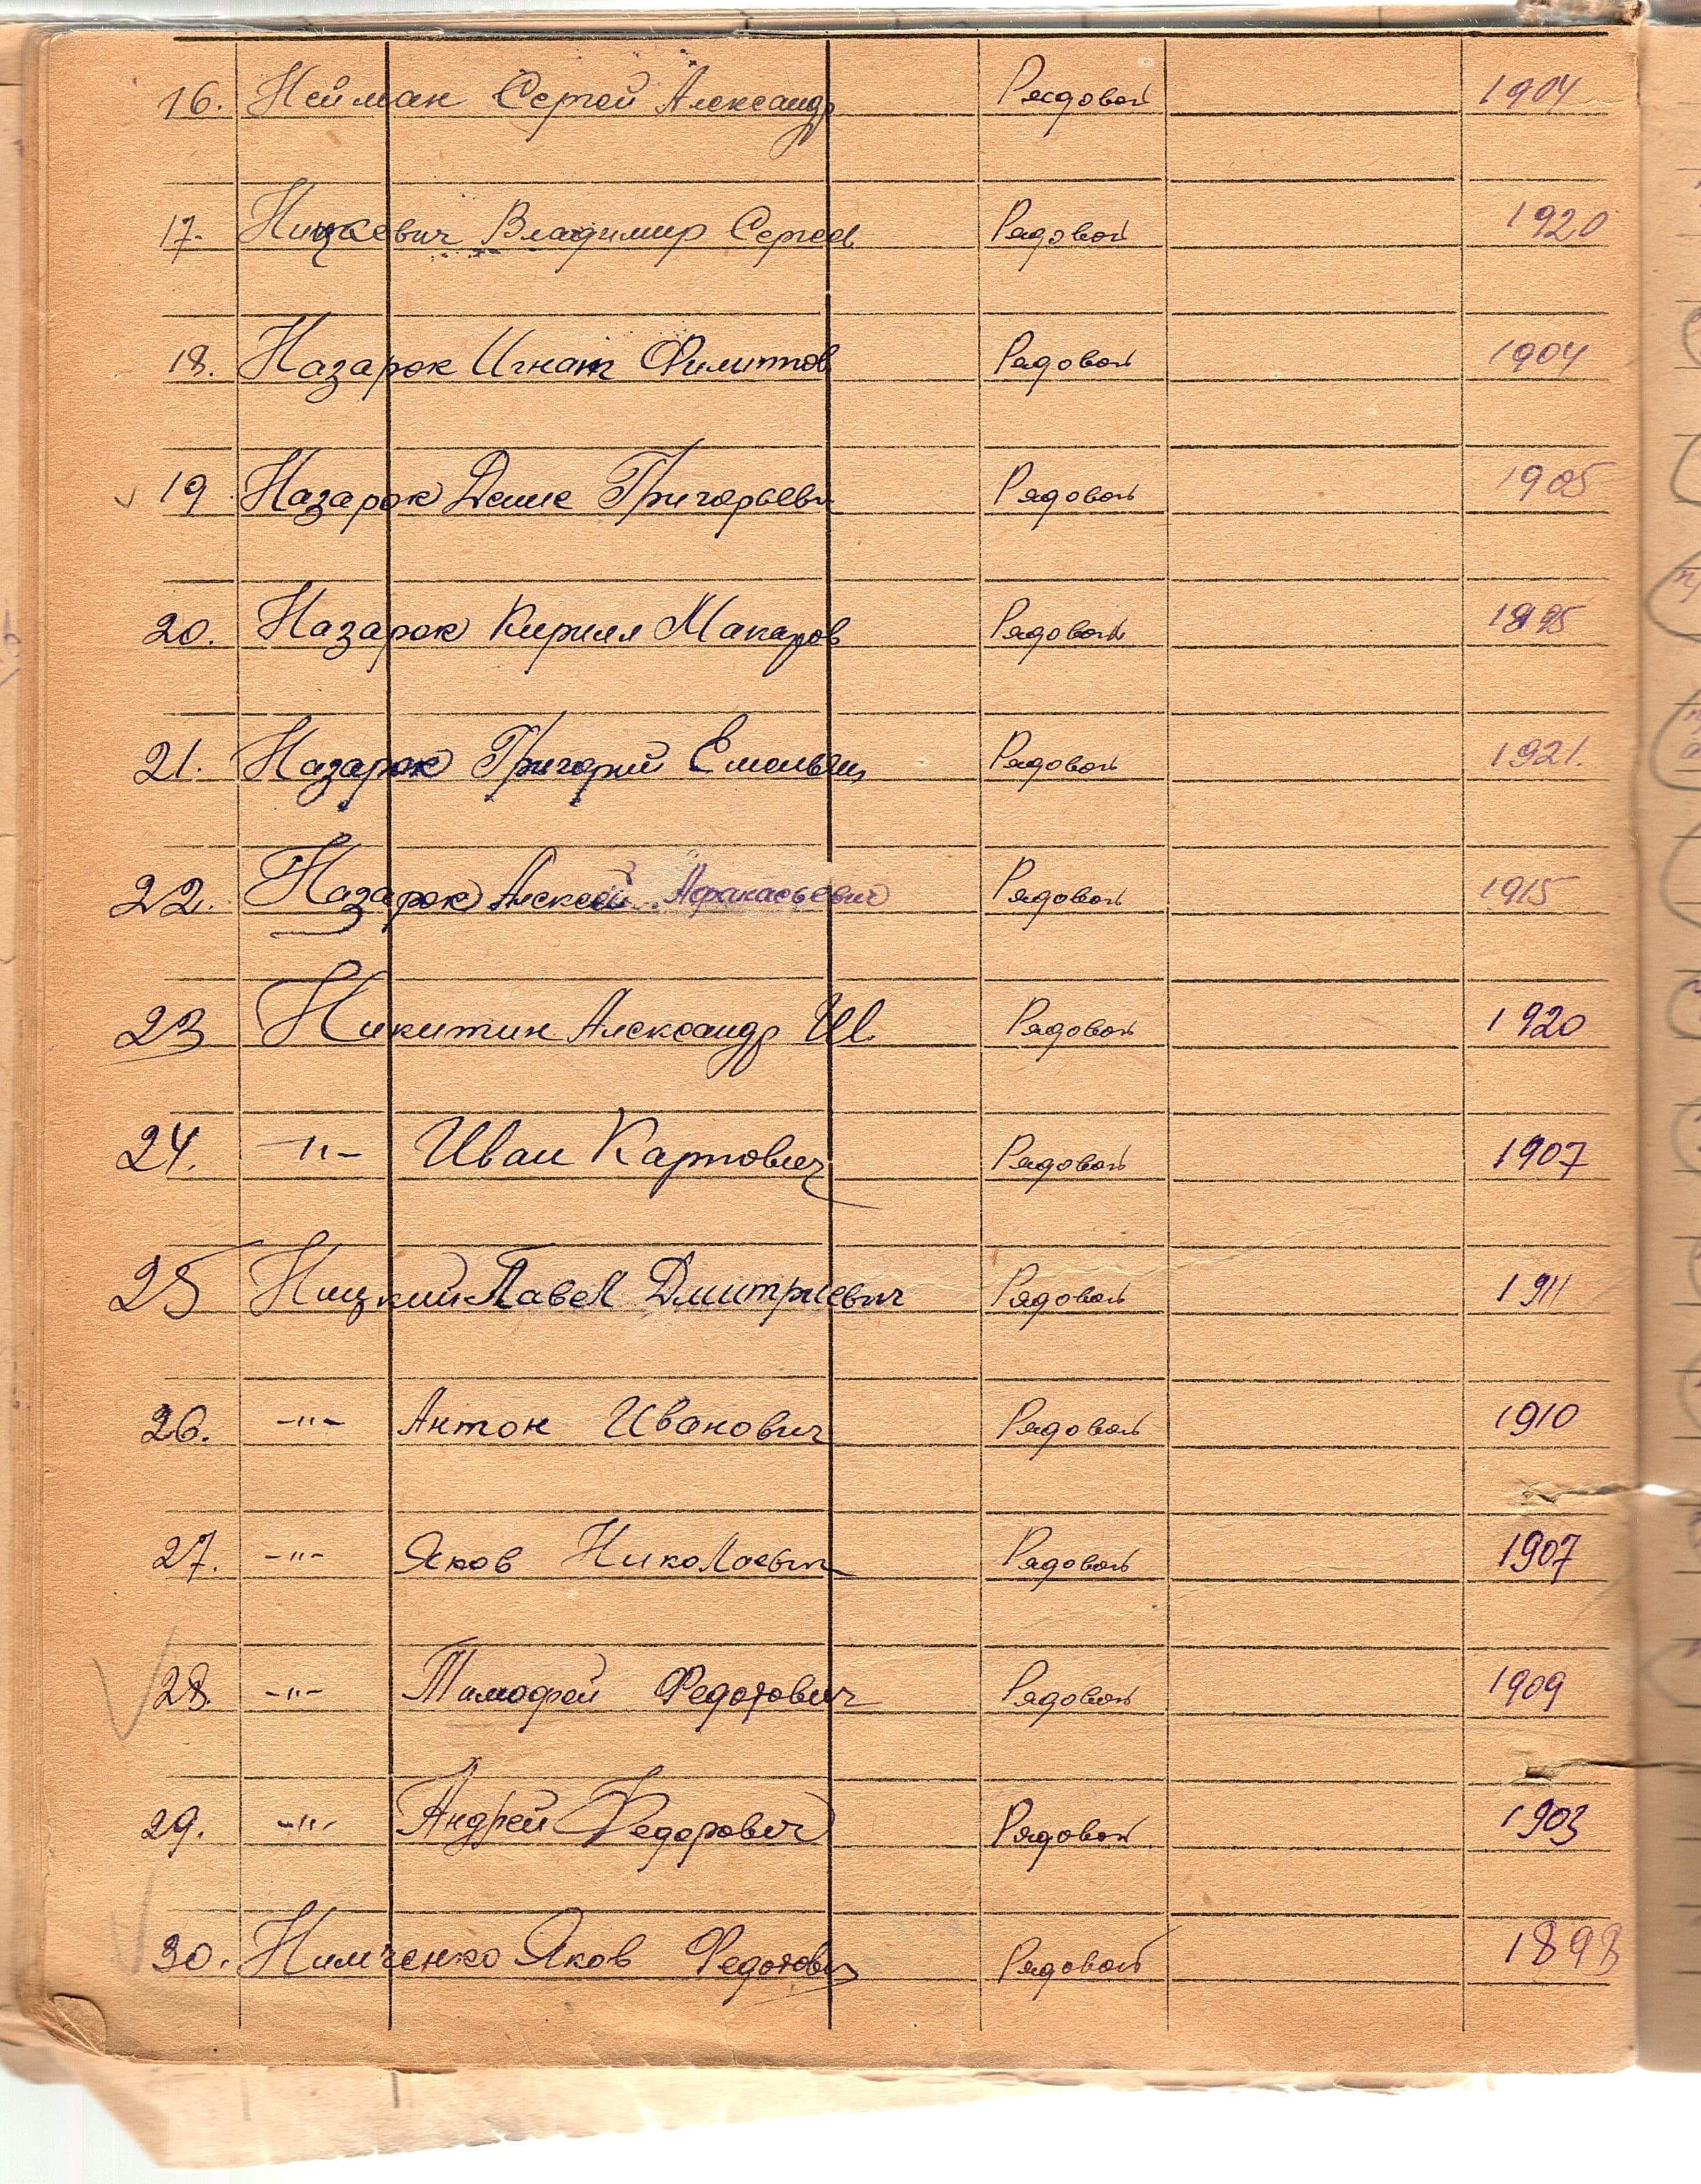 16. Нейман Сергей Александр Рядовой 1904
17. Ницкевич Владимир Сергеев Рядовой 1920
18. Назарок Игнат Филиппов Рядовой 1904
19 Назарок Григорьеви Рядовой 1905
20. Назарок Кирилл Макаров Рядовой
21. Назарок Григорий Емельян Рядовой 1921.
22. Назарок Алексей Афанасьевич Рядовой 1915
23 Никитин Александр И. Рядовой 1920
24. -"- Иван Карпович Рядовой 1907
25 Ницкий Павел Дмитриевич Рядовой 1911
26. -"- Антон Иванович Рядовой 1910
27. -"- Яков Николаевич Рядовой 1907
28. -"- Тимофей Федотович Рядовой 1909
29. -"- Андрей Федорович Рядовой 1903
30. Нимченко Яков Федотович Рядовой 1898